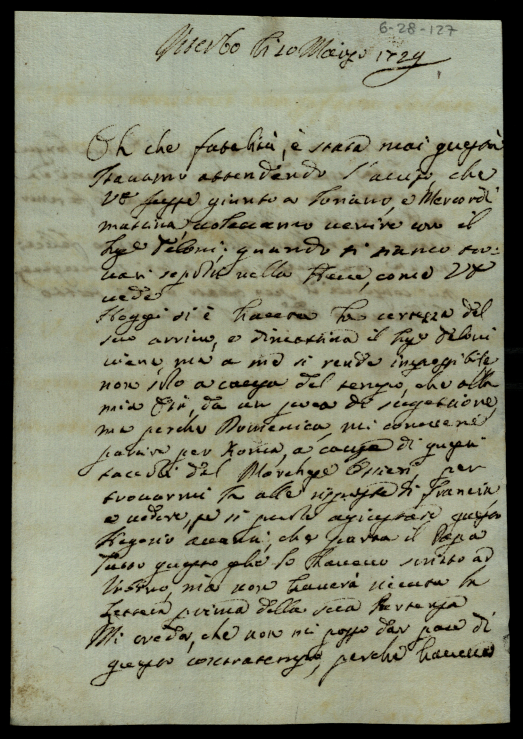 6-28-127
Viterbo li 20 Marzo 1729
Oh che fatalità, è stata mai questa
stavamo attendendo l'aviso che
VS fosse giunto a e Mercordi
mattina volevamo venire con il
quando si siamo tro-
vati sepolti nella Neve, come VS
vede
Hoggi si è havuta la certezza del
suo arrivo, e dimattina il
viene, ma a me si rende impossibile
non solo a causa del tempo, che alla
mia età, da un poca di suggestione
ma perche Domenica, mi conviene
partire per Roma, a causa di questi
del Marchese per
trovarmi là alle risposte di Francia
a vedere, se si puole aggiustare questo
Negozio avanti, che parta il Papa
Tutto questo glie lo havevo scritto ad
ma non haverà ricevuta la
lettera prima della sua Partenza
Mi creda, che non mi posso dar pace di
questo contratempo, perche havevo